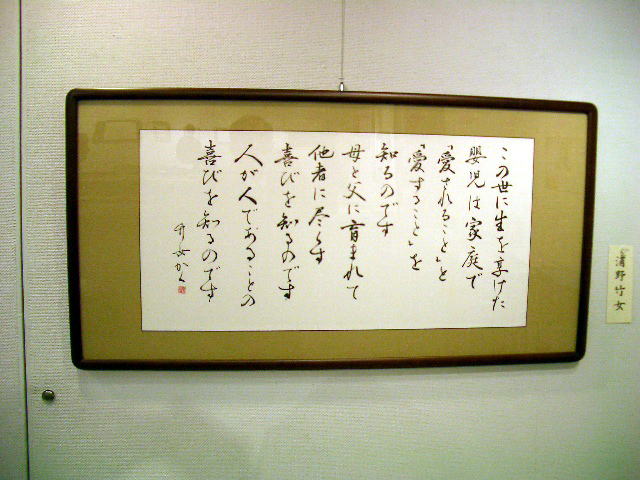 この世に生を享けた
嬰児は家庭で
「愛されること」と
「愛すること」を
知るのです
母と父に育まれて
他者に尽くす
喜びを知るのです
人が人であることの
喜びを知るのです
竹女かく
浦野竹女